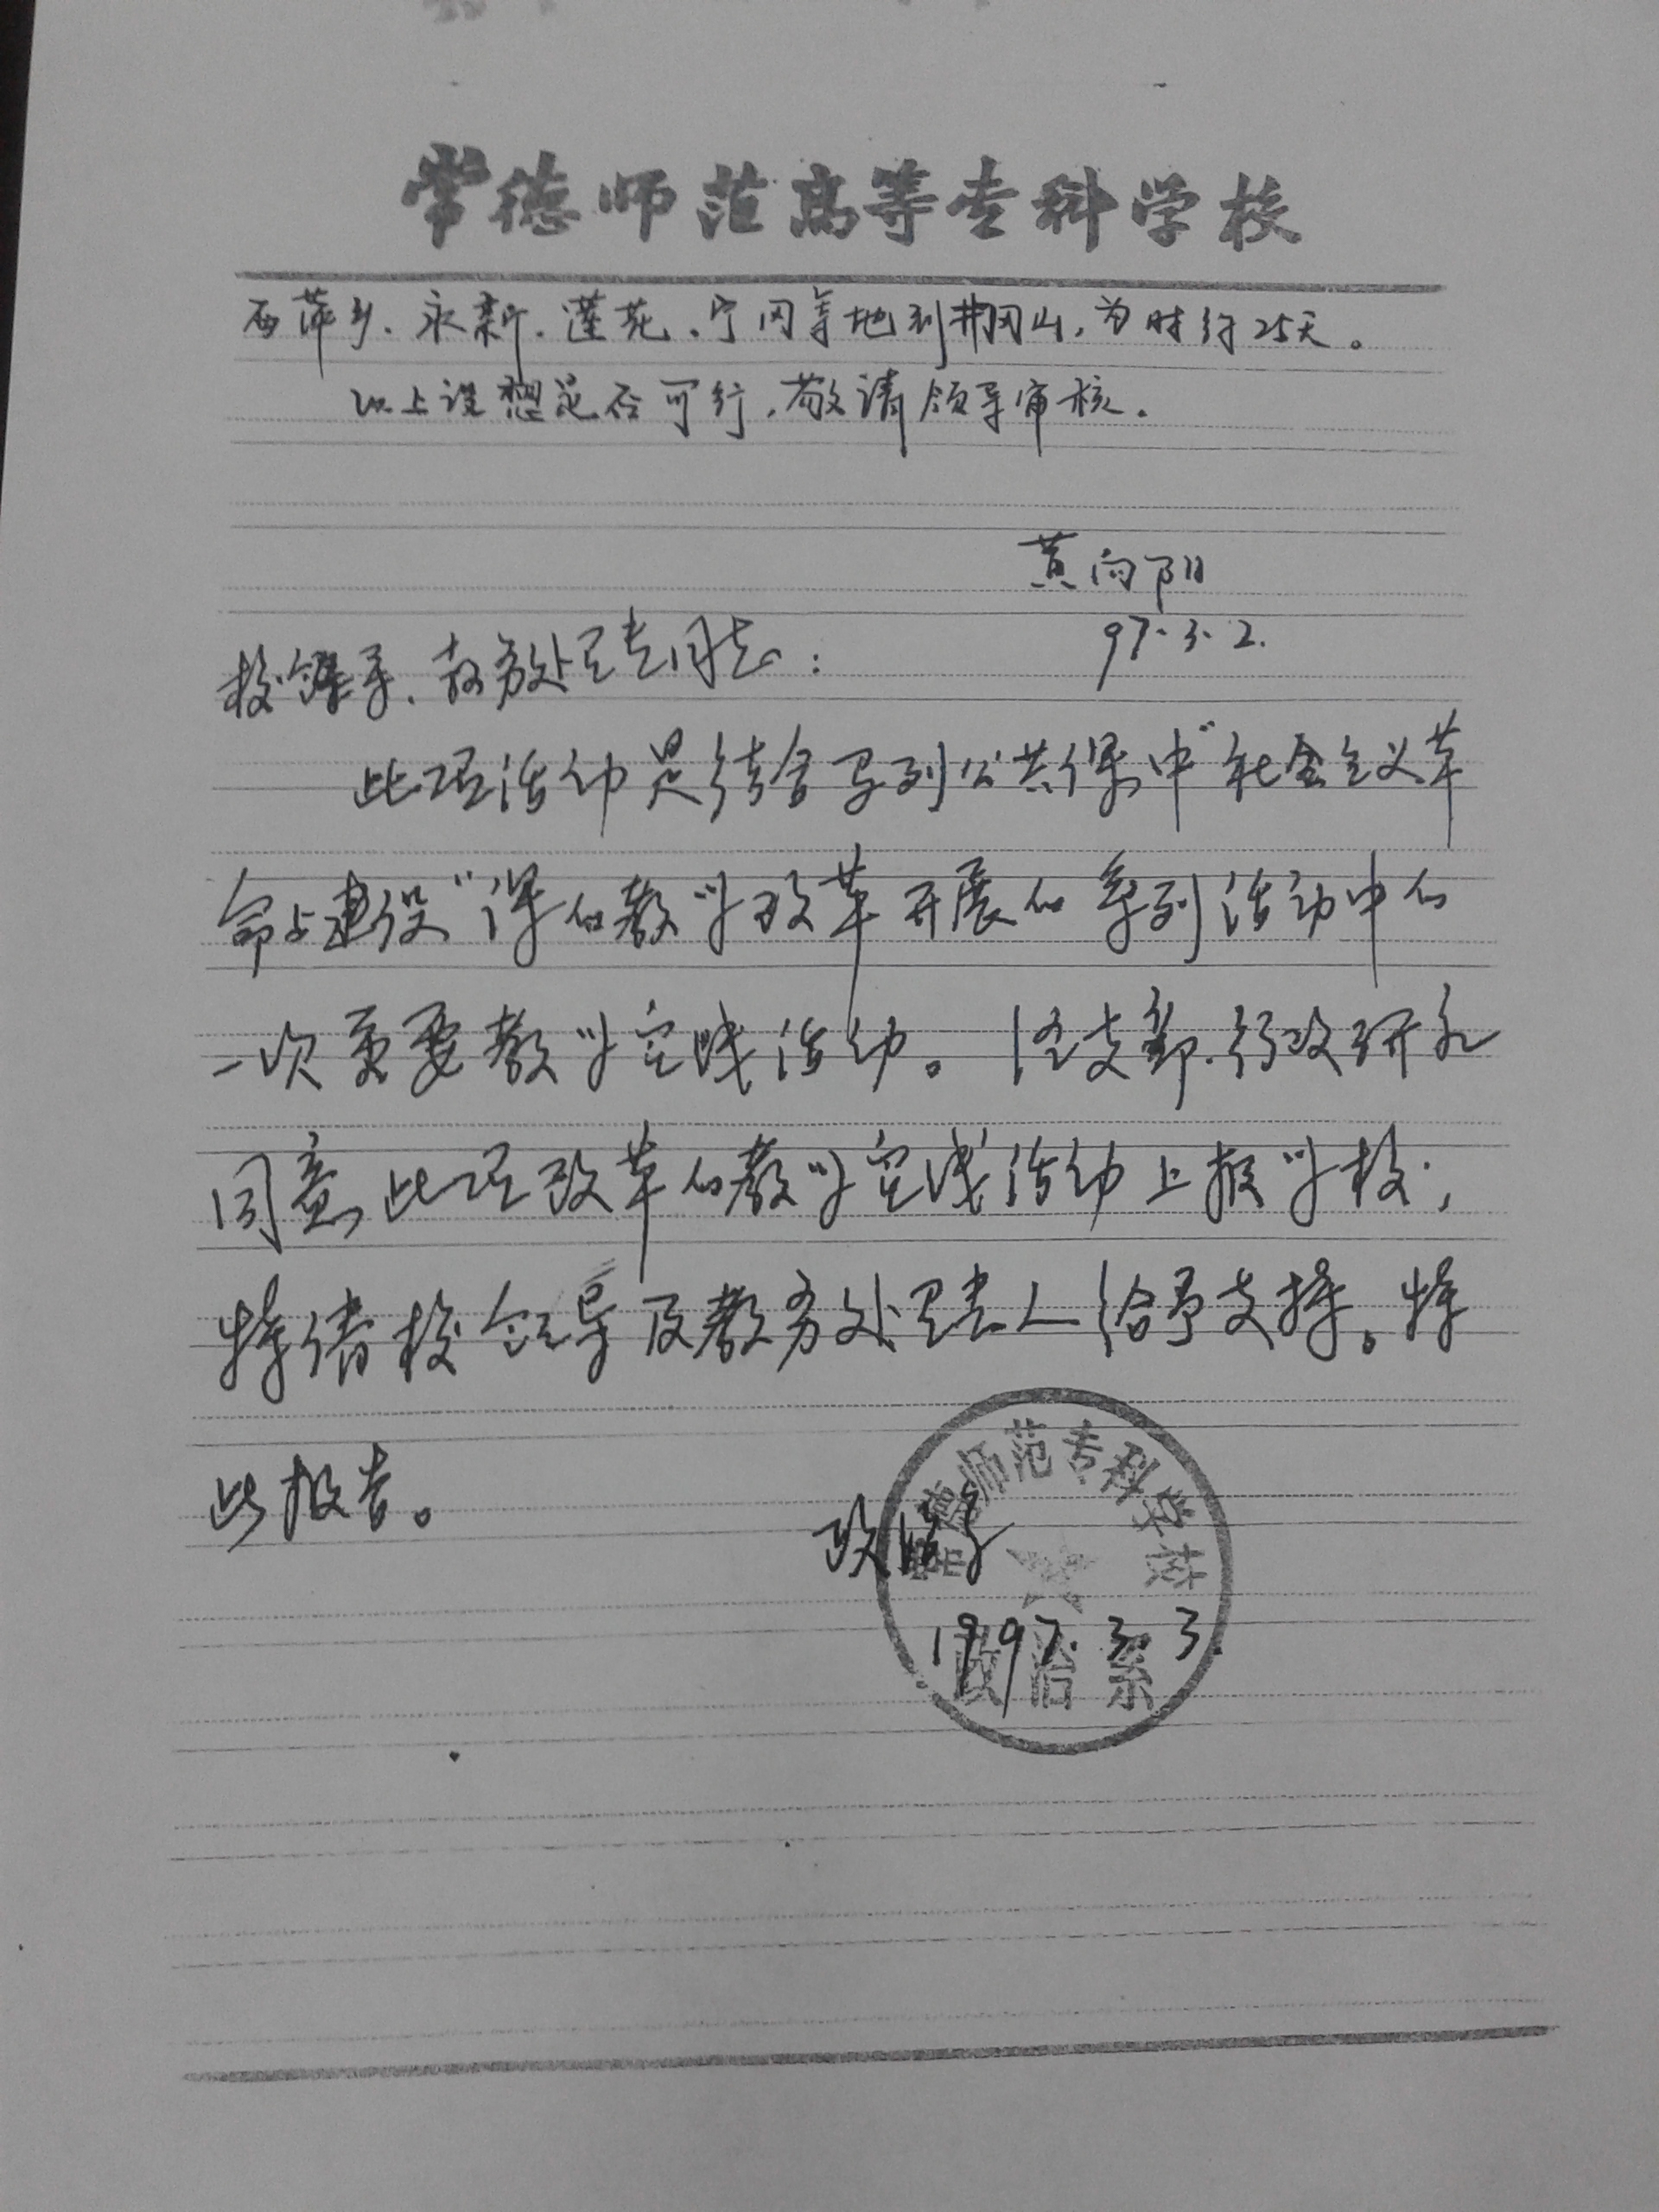 常德师范高等专科学校
西萍乡、永新、莲花、宁冈等地到井冈山,为时约25天。
以上设想是否可行,敬请领导审核。
黄向阳
97.3.2.
校领导、教务处负责同志:
此项活动是结合马列公共课中“社会主义革
命与建设”课的教学改革开展的系列活动中的
一次重要教学实践活动。经支部、行政研究
同意此项改革的教学实践活动上报学校;
特请校领导及教务处负责人给予支持。特
此报告。
政治系
1997.3.3.
常德师范专科学校
政治系